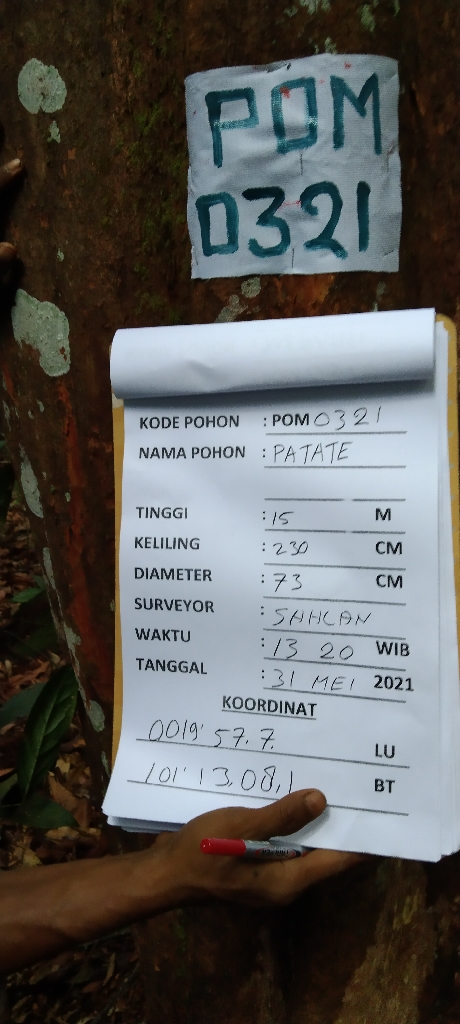 POM
0321
KODE POHON : POM 0321
NAMA POHON : PATATE
TINGGI : 15 M
KELILING : 230 CM
DIAMETER : 73 CM
SURVEYOR : SAHLAN
WAKTU : 13 20 WIB
TANGGAL : 31 MEI 2021
KOORDINAT
0019' 57.7. LU
101' 13.08,1 BT